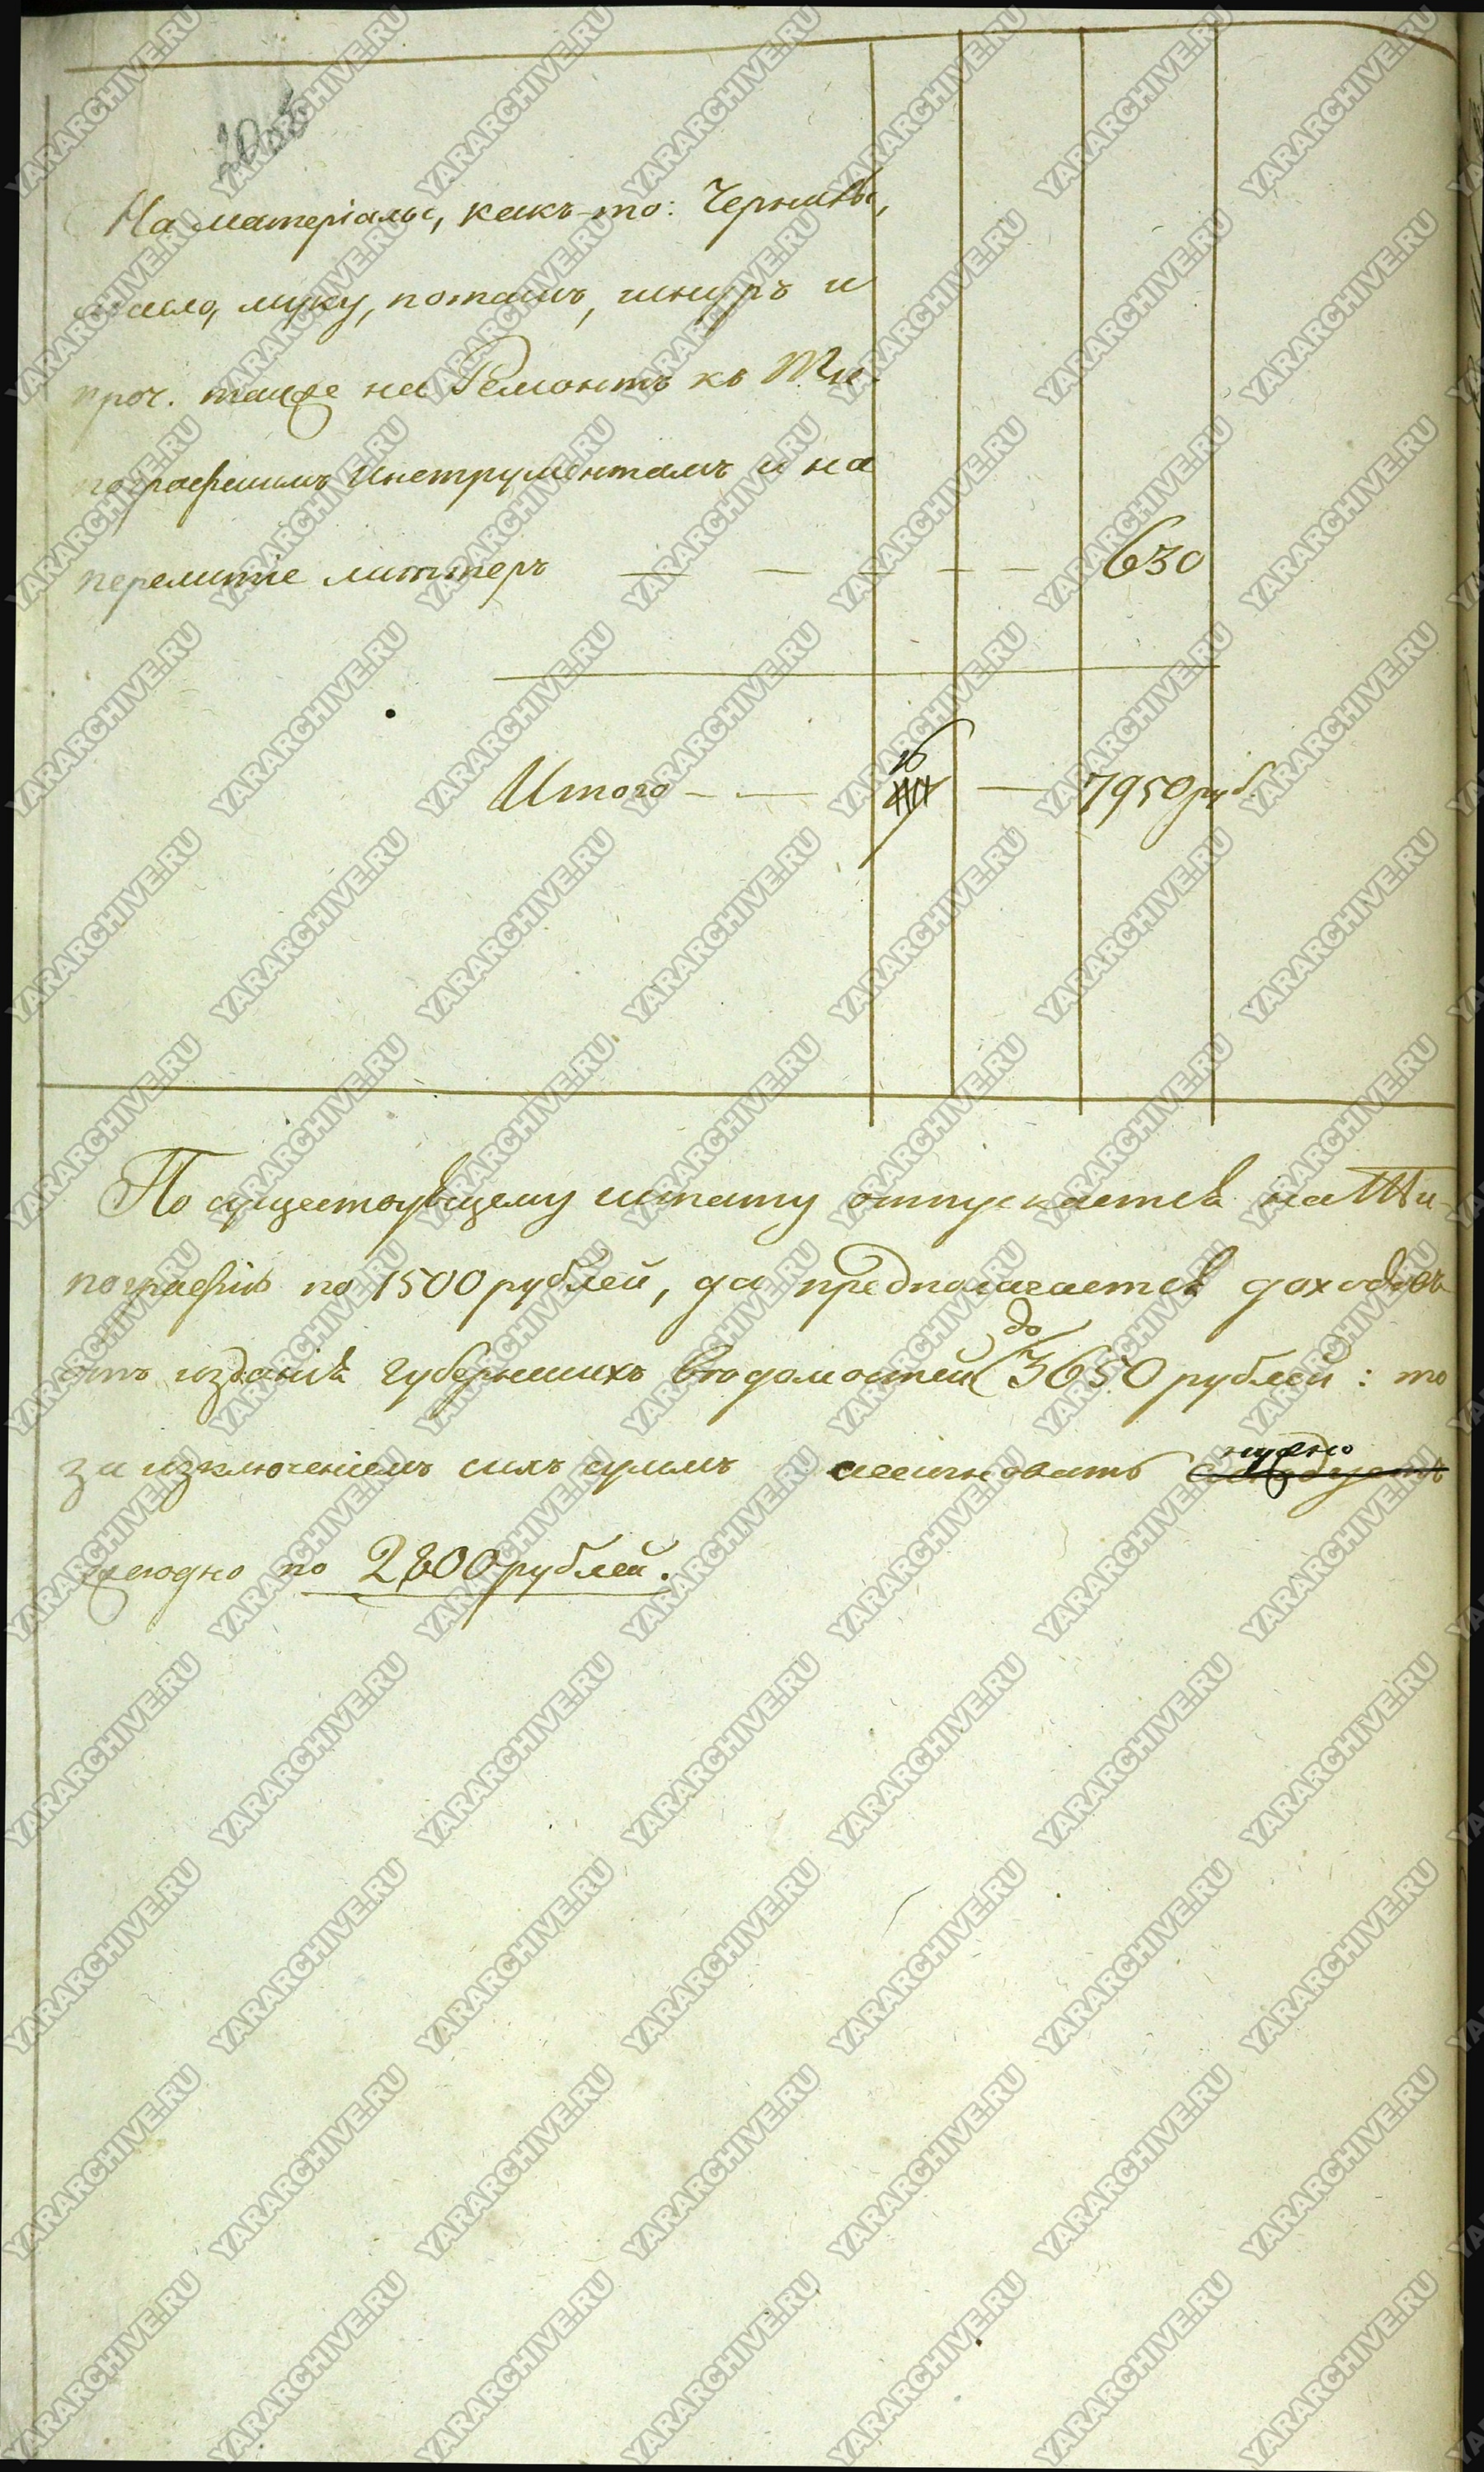 На матеріалы, какъ-то: Чернилы,
масло, муку, поташъ, шнуръ и
проч. также на Ремонтъ къ Ти-
пографскимъ Инструментамъ и на
перелитіе литтеръ — — — — — 630
Итого — — 16 — 7950 руб.
По существующему штату отпускается на Ти-
пографію по 1500 рублей, да предполагается доходовъ
до
отъ изданія Губернскихъ Вѣдомостей 3650 рублей: то
нужно
за изключеніемъ сихъ суммъ ассигновать слѣдуетъ
ежегодно по 2800 рублей.